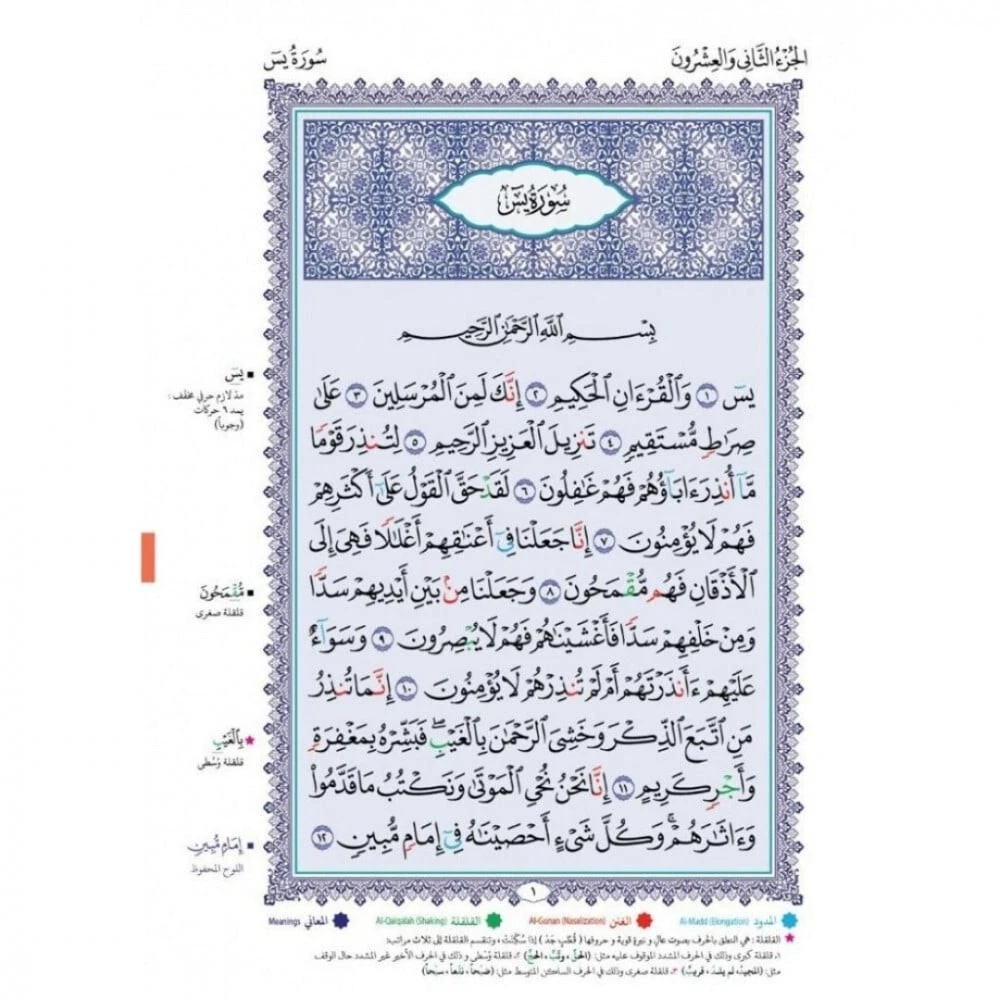 الجُزْءُ الثَّانِى وَالْعِشْرُونَ
سُورَةُ يسٓ
سُورَةُ يسٓ
بِسْمِ اللَّهِ الرَّحْمَٰنِ الرَّحِيمِ
يسٓ ١ وَالْقُرْءَانِ الْحَكِيمِ ٢ إِنَّكَ لَمِنَ الْمُرْسَلِينَ ٣ عَلَىٰ
صِرَاطٍ مُّسْتَقِيمٍ ٤ تَنزِيلَ الْعَزِيزِ الرَّحِيمِ ٥ لِتُنذِرَ قَوْمًا
مَّآ أُنذِرَ ءَابَآؤُهُمْ فَهُمْ غَٰفِلُونَ ٦ لَقَدْ حَقَّ الْقَوْلُ عَلَىٰٓ أَكْثَرِهِمْ
فَهُمْ لَا يُؤْمِنُونَ ٧ إِنَّا جَعَلْنَا فِىٓ أَعْنَٰقِهِمْ أَغْلَٰلًا فَهِىَ إِلَى
الْأَذْقَانِ فَهُم مُّقْمَحُونَ ٨ وَجَعَلْنَا مِنۢ بَيْنِ أَيْدِيهِمْ سَدًّا
وَمِنْ خَلْفِهِمْ سَدًّا فَأَغْشَيْنَٰهُمْ فَهُمْ لَا يُبْصِرُونَ ٩ وَسَوَآءٌ
عَلَيْهِمْ ءَأَنذَرْتَهُمْ أَمْ لَمْ تُنذِرْهُمْ لَا يُؤْمِنُونَ ١٠ إِنَّمَا تُنذِرُ
مَنِ اتَّبَعَ الذِّكْرَ وَخَشِىَ الرَّحْمَٰنَ بِالْغَيْبِ ۖ فَبَشِّرْهُ بِمَغْفِرَةٍ
وَأَجْرٍ كَرِيمٍ ١١ إِنَّا نَحْنُ نُحْىِ الْمَوْتَىٰ وَنَكْتُبُ مَا قَدَّمُوا۟
وَءَاثَٰرَهُمْ ۚ وَكُلَّ شَىْءٍ أَحْصَيْنَٰهُ فِىٓ إِمَامٍ مُّبِينٍ ١٢
يسٓ
مدّ لازم حرفي مخفّف:
يمد ٦ حركات
(وجوباً)
مُّقْمَحُونَ
قلقلة صغرى
بِالْغَيْبِ
قلقلة وُسْطى
إِمَامٍ مُّبِينٍ
اللوح المحفوظ
١
المدود Al-Madd (Elongation) الغنن Al-Gunan (Nasalization) القلقلة Al-Qalqalah (Shaking) المعاني Meanings
القلقلة : هي النطق بالحرف بصوت عالٍ و نبرةٍ قوية و حروفها ( قُطْبُ جَدّ ) إذا سُكِّنَتْ ، وتنقسم القلقلة إلى ثلاث مراتب:
١. قلقلة كبرى وذلك في الحرف المشدد الموقوف عليه مثل: (الحقّ ، وتبّ ، الحجّ) ٢. قلقلة وُسْطى و ذلك في الحرف الأخير غير المشدد حال الوقف
مثل: (المجيدْ، لم يلدْ ، قريبْ) ٣. قلقلة صغرى وذلك في الحرف الساكن المتوسط مثل: (صَبْحاً ، نقْعاً ، سبْحاً)